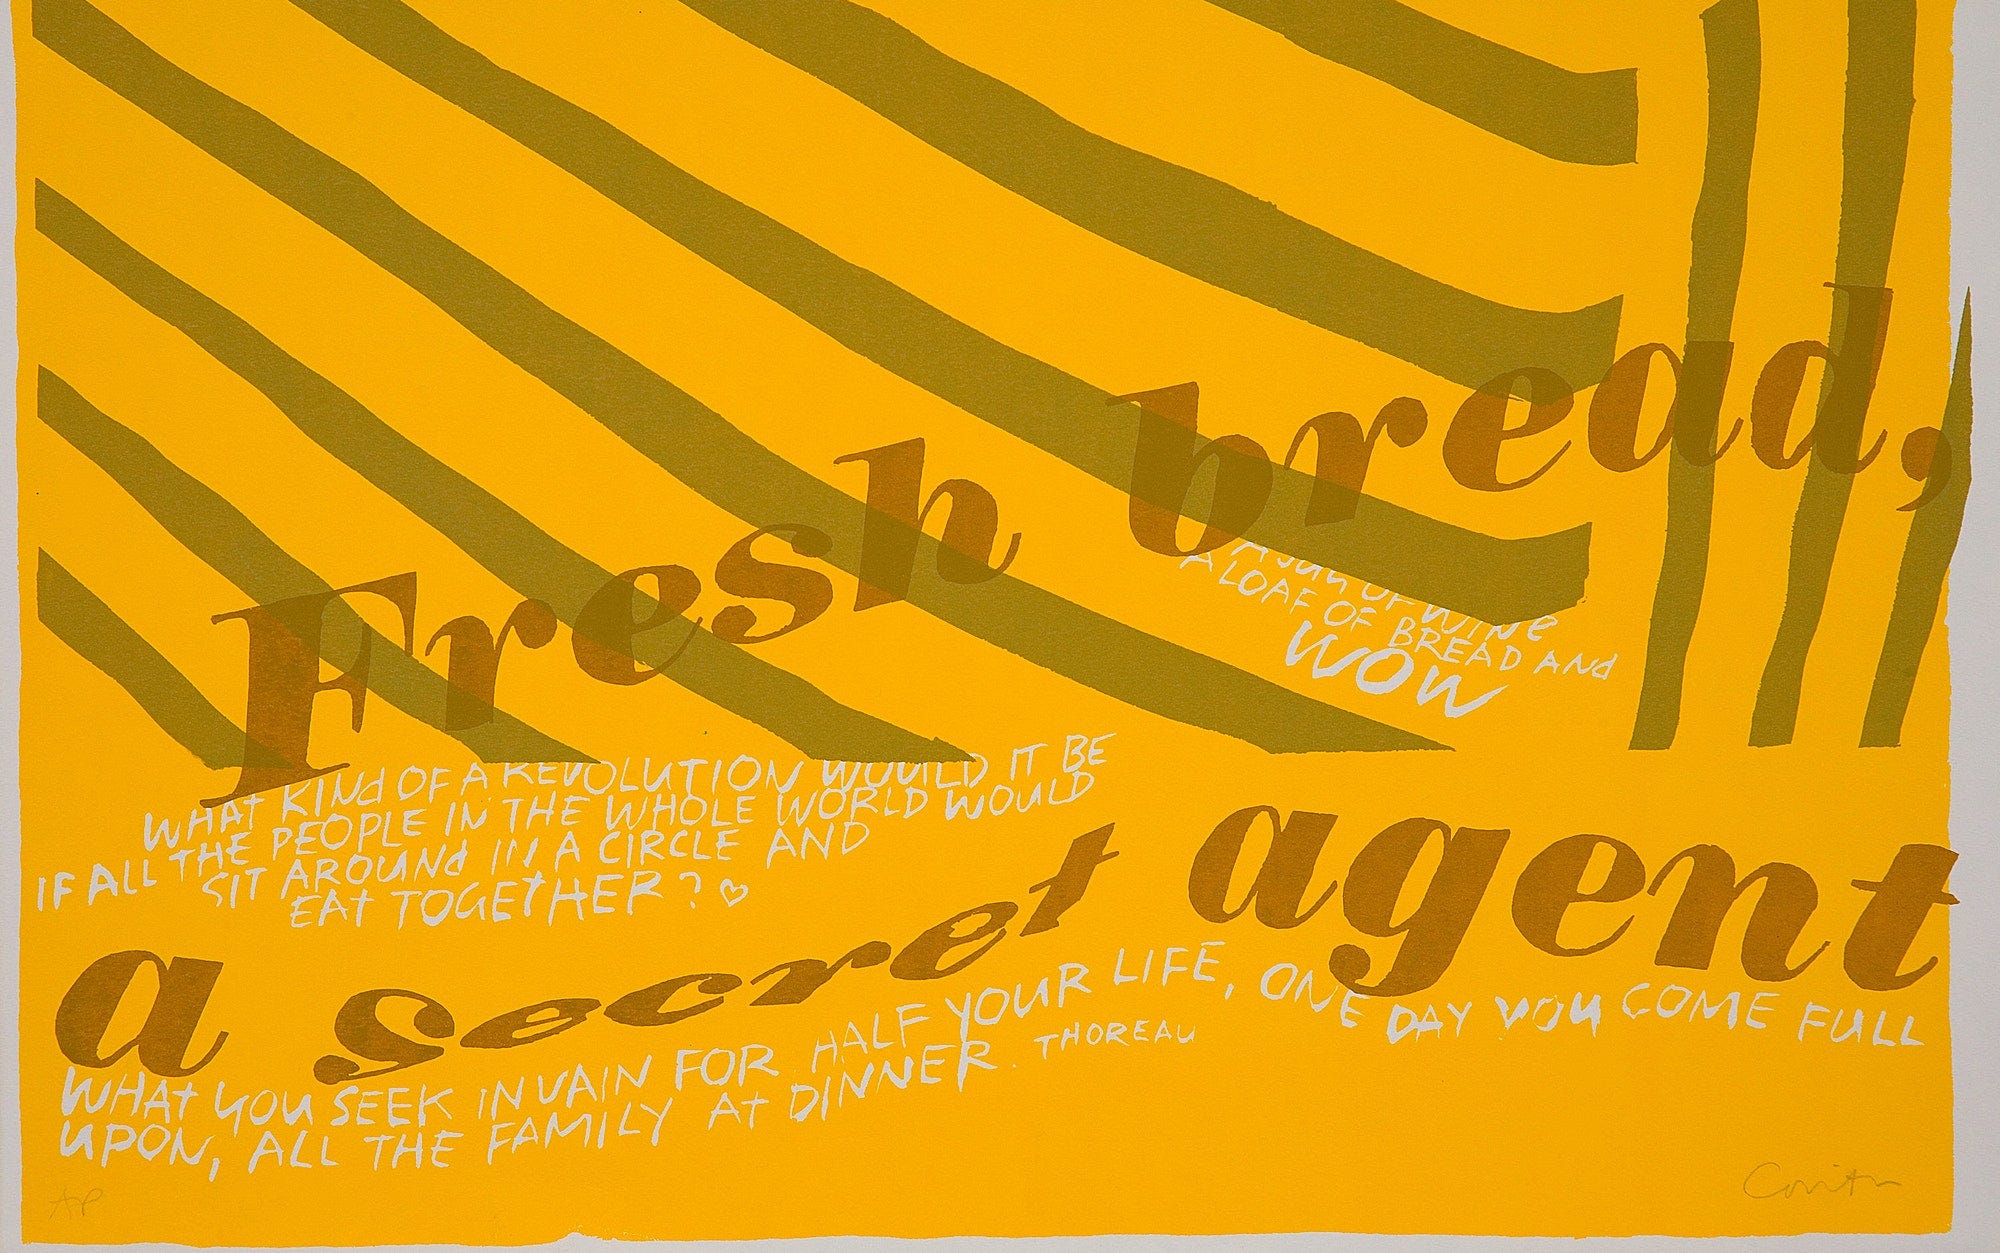 Fresh bread,
A JUG OF WINE
A LOAF OF BREAD AND
WOW
WHAT KIND OF A REVOLUTION WOULD IT BE
IF ALL THE PEOPLE IN THE WHOLE WORLD WOULD
SIT AROUND IN A CIRCLE AND
EAT TOGETHER? ♡
a secret agent
WHAT YOU SEEK IN VAIN FOR HALF YOUR LIFE, ONE DAY YOU COME FULL
UPON, ALL THE FAMILY AT DINNER. THOREAU
AP
Corita